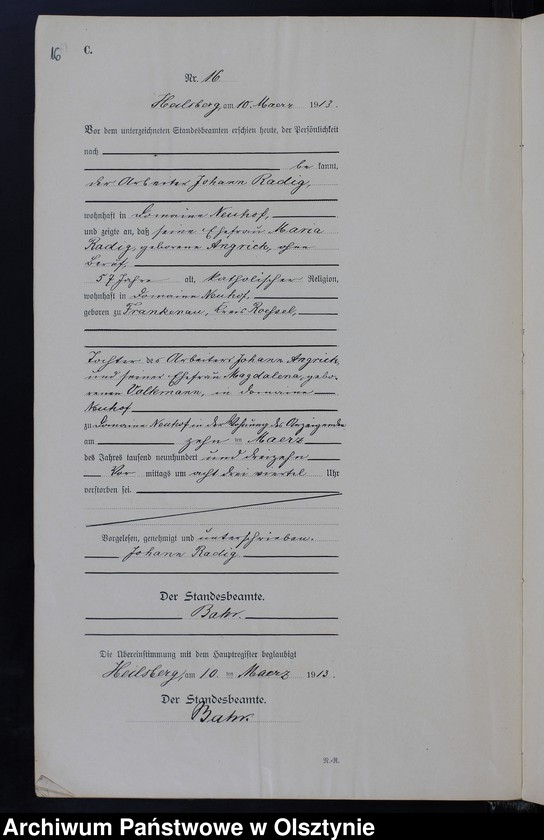 16
C.
Nr. 16
Heilsberg, am 10. Maerz 1913.
Vor dem unterzeichneten Standesbeamten erschien heute, der Persönlichkeit
nach
be kannt,
der Arbeiter Johann Radig,
wohnhaft in Domaine Neuhof,
und zeigte an, daß seine Ehefrau Maria
Radig, geborene Angrick, ohne
Beruf,
57 Jahre alt, katholischer Religion,
wohnhaft in Domaine Neuhof,
geboren zu Frankenau, Kreis Roessel,
Tochter des Arbeiters Johann Angrick,
und seiner Ehefrau Magdalena, gebo-
renen Volkmann, in Domaine
Neuhof
zu Domaine Neuhof in der Wohnung des Anzeigenden
am zehn ten Maerz
des Jahres tausend neunhundert und dreizehn
Vor mittags um acht drei viertel Uhr
verstorben sei.
Vorgelesen, genehmigt und unterschrieben.
Johann Radig
Der Standesbeamte.
Bahr.
Die Übereinstimmung mit dem Hauptregister beglaubigt
Heilsberg, am 10 ten Maerz 1913.
Der Standesbeamte.
Bahr.
N.-R.
Archiwum Państwowe w Olsztynie